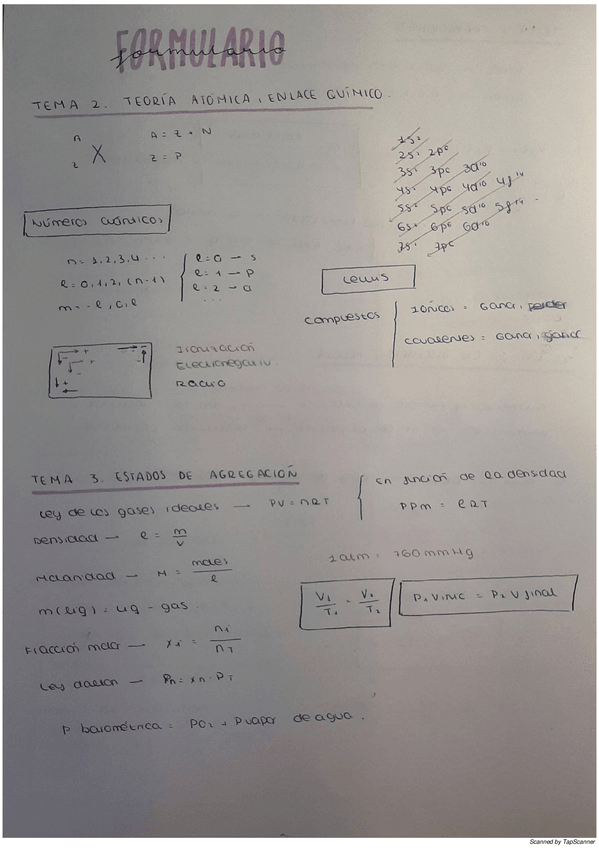 FORMULARIO
formulario
TEMA 2. TEORÍA ATÓMICA, ENLACE QUÍMICO.
A
Z X
A = Z + N
Z = P
1s²
2s² 2p6
3s² 3p6 3d10
4s² 4p6 4d10 4f14
5s² 5p6 5d10 5f14
6s² 6p6 6d10
7s² 7p6
Números cuánticos
n = 1, 2, 3, 4 ...
l = 0, 1, 2, (n-1)
m = -l, 0, l
l = 0 → s
l = 1 → p
l = 2 → d
...
Lewis
compuestos
Iónicos = Ganar, perder
covalentes = Ganar, ganar
Ionización
Electronegativ.
Radio
TEMA 3. ESTADOS DE AGREGACIÓN
Ley de los gases ideales — PV = nRT
En función de la densidad
PPm = ρRT
Densidad — ρ = m/V
1 atm = 760 mmHg
Molaridad — M = moles/l
V1/T1 = V2/T2
P1 Vinic = P2 V final
m(liq) = liq - gas.
Fracción molar — xi = ni/nT
Ley dalton — Pn = xn · PT
P barométrica = PO2 + Pvapor de agua.
Scanned by TapScanner